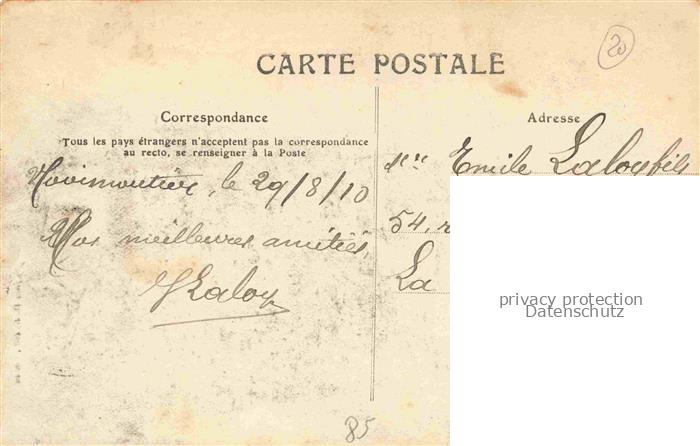 20
CARTE POSTALE
Correspondance
Tous les pays étrangers n'acceptent pas la correspondance
au recto, se renseigner à la Poste
Noirmoutier, le 29/8/10
Mes meilleures amitiés,
Laloy
Adresse
Mr Emile Laloy fils
54, r
La
privacy protection
Datenschutz
85